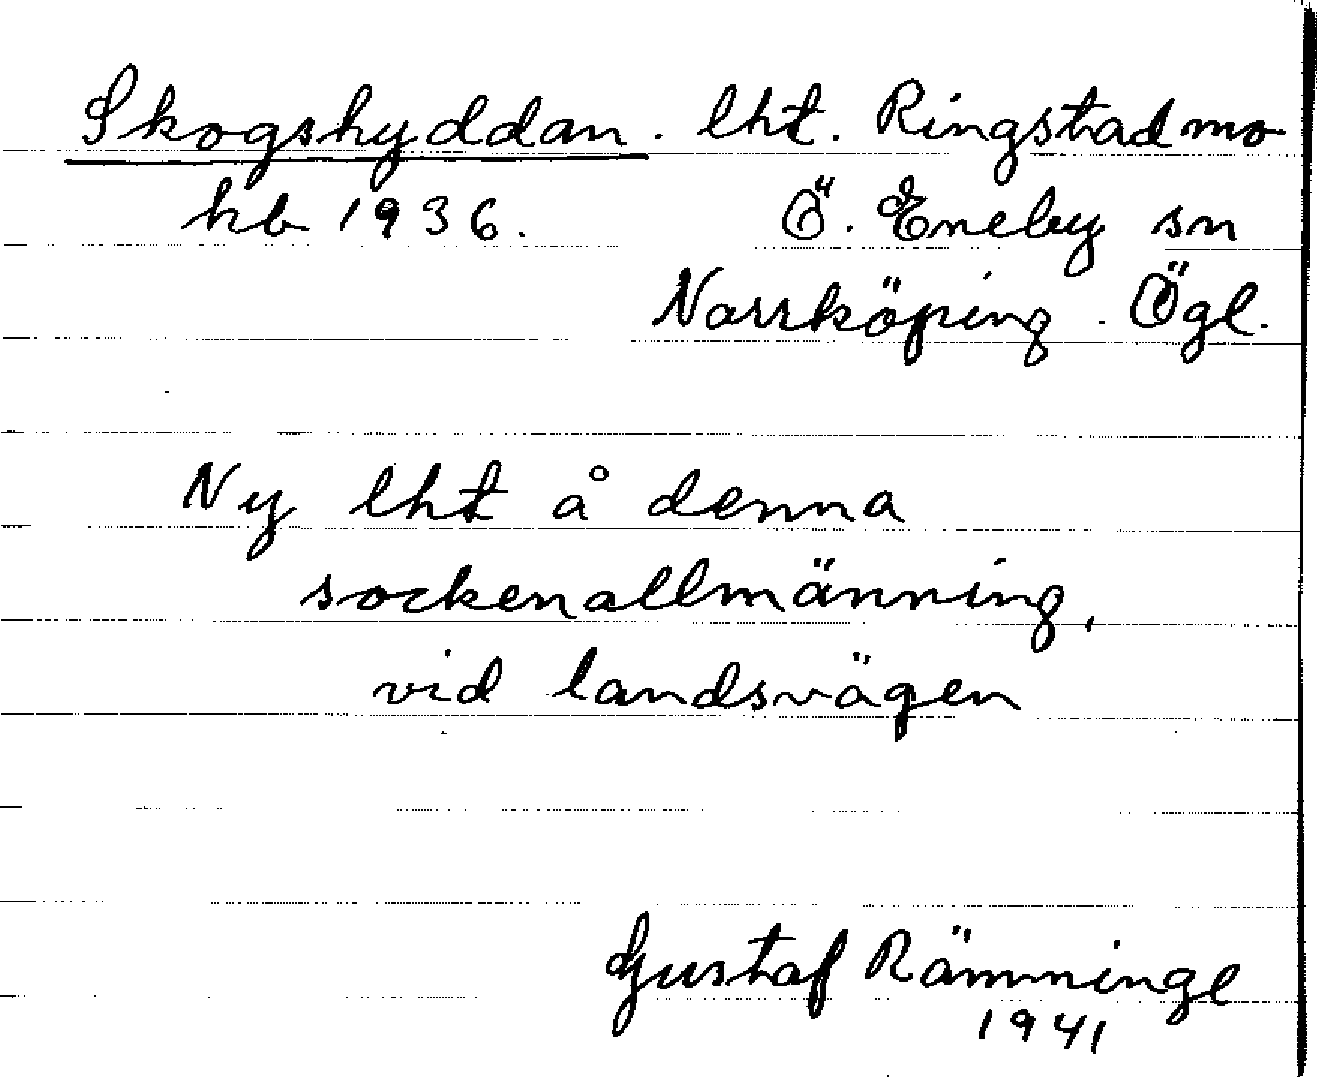 Skogshyddan. lht. Ringstad mo
kb 1936. Ö. Eneby sn
Norrköping. Ögl.
Ny lht å denna
sockenallmänning,
vid landsvägen
Gustaf Rämninge
1941